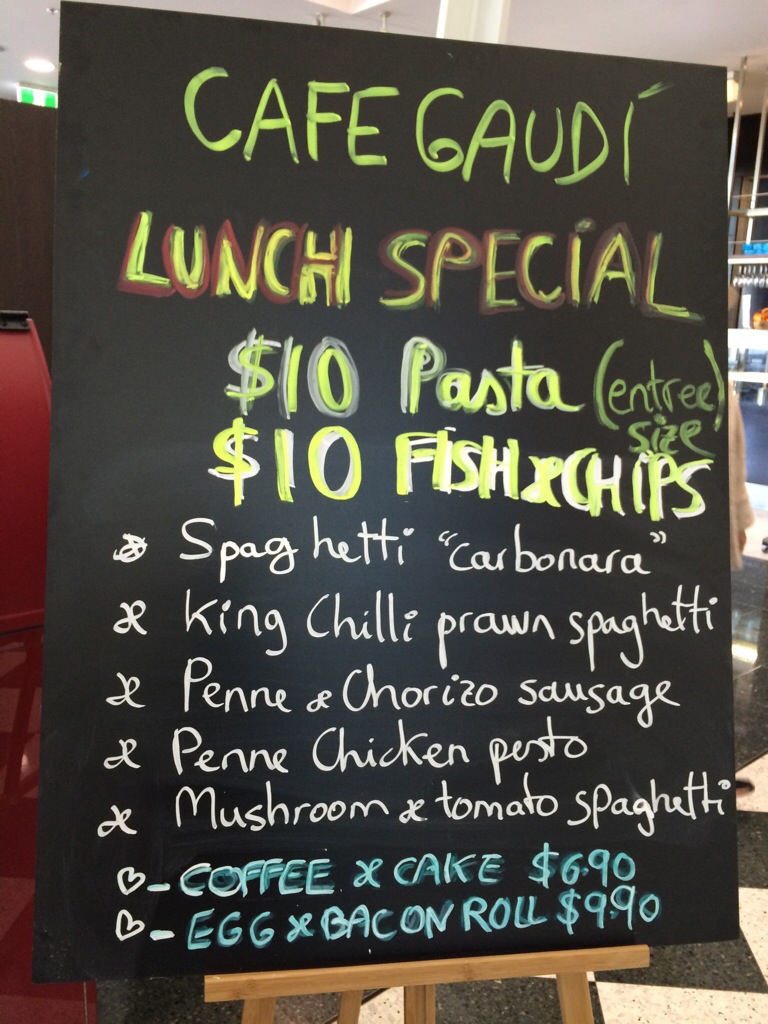 CAFE GAUDÍ
LUNCH SPECIAL
$10 Pasta (entree size)
$10 FISH & CHIPS
Spaghetti "carbonara"
King Chilli prawn spaghetti
Penne & Chorizo sausage
Penne Chicken pesto
Mushroom & tomato spaghetti
- COFFEE & CAKE $6.90
- EGG & BACON ROLL $9.90